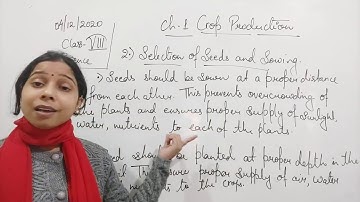 04/12/2020
Class-VIII
Ch.1 Crop Production
2:) Selection of Seeds and Sowing.
Seeds should be sown at a proper distance
from each other. This prevents overcrowding of
the plants and ensures proper supply of sunlight,
water, nutrients to each of the plants.
should be planted at proper depth in the
This ensure proper supply of air, water
nutrients to the crops.